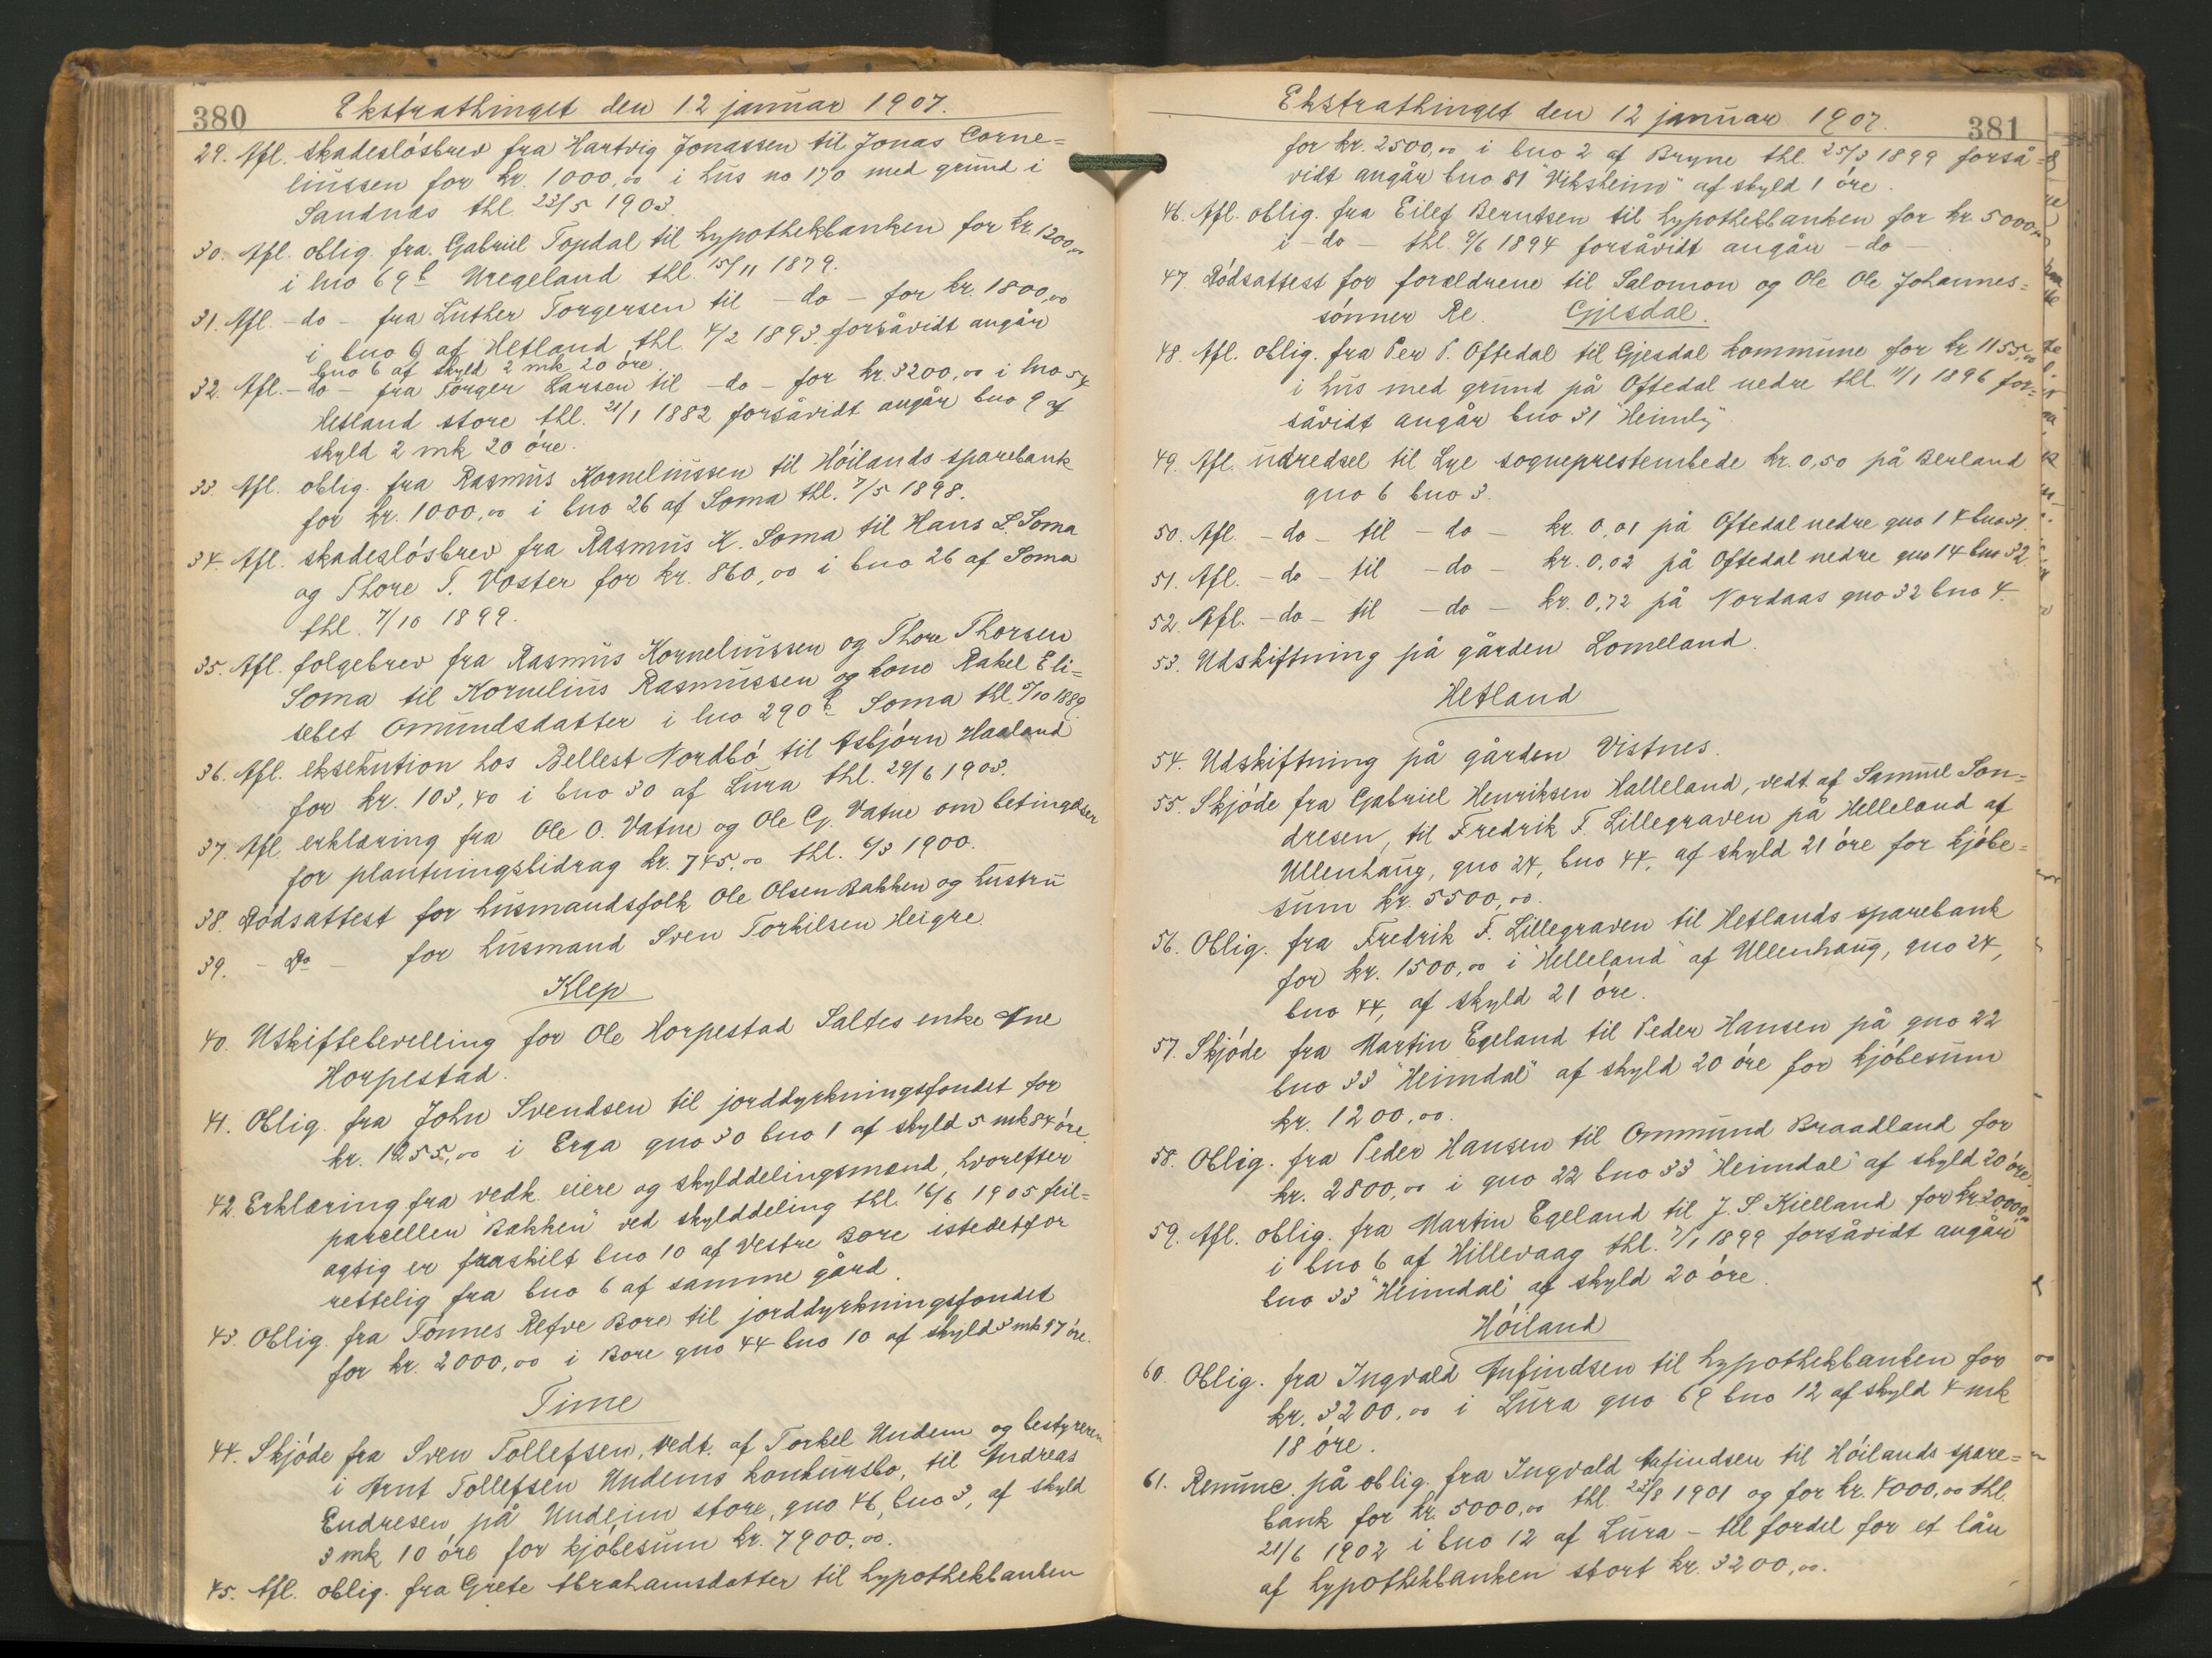 380
Ekstrathinget den 12 januar 1907.
29. Afl. skadesløsbrev fra Hartvig Jonassen til Jonas Corne=
liussen for kr. 1000,00 i hus no 170 med grund i
Sandnæs thl. 23/5 1903.
30. Afl. oblig. fra Gabriel Topdal til hypothekbanken for kr. 1200,00
i lno 69b Uregeland thl. 15/11 1879.
31. Afl. - do - fra Luther Torgersen til - do - for kr. 1800,00
i bno 9 af Hetland thl. 4/2 1893 forsåvidt angår
bno 6 af skyld 2 mk 20 øre.
32. Afl. - do - fra Torger Larsen til - do - for kr. 3200,00 i lno 54
Hetland store thl. 21/1 1882 forsåvidt angår bno 9 af
skyld 2 mk 20 øre.
33. Afl. oblig. fra Rasmus Korneliussen til Höilands sparebank
for kr. 1000,00 i bno 26 af Soma thl. 7/5 1898.
34. Afl. skadesløsbrev fra Rasmus K. Soma til Hans L. Soma
og Thore T. Voster for kr. 860,00 i bno 26 af Soma
thl. 7/10 1899.
35. Afl. følgebrev fra Rasmus Korneliussen og Thore Thorsen
Soma til Kornelius Rasmussen og kone Rakel Eli=
sebet Omundsdatter i lno 290b Soma thl. 5/10 1889.
36. Afl. eksekution hos Bellest Nordbö til Asbjörn Haaland
for kr. 103,40 i bno 30 af Lura thl. 29/6 1903.
37. Afl. erklæring fra Ole O. Vatne og Ole G. Vatne om betingelser
for plantningsbidrag kr. 745,00 thl. 6/3 1900.
38. Dödsattest for husmandsfolk Ole Olsen Bakken og hustru
39. - Do - for husmand Sven Torkilsen Heigre.
Klep
40. Uskiftebevilling for Ole Horpestad Saltes enke Ane
Horpestad.
41. Oblig. fra John Svendsen til jorddyrkningsfondet for
kr. 1255,00 i Erga gno 30 bno 1 af skyld 5 mk 84 øre.
42. Erklæring fra vedk. eiere og skylddelingsmænd, hvorefter
parcellen "Bakken" ved skylddeling thl. 16/6 1905 feil=
agtig er fraskilt bno 10 af Vestre Bore istedetfor
rettelig fra bno 6 af samme gård.
43. Oblig. fra Tönnes Refve Bore til jorddyrkningsfondet
for kr. 2000,00 i Bore gno 44 bno 10 af skyld 3 mk 97 øre.
Time
44. Skjöde fra Sven Tollefsen, vedt. af Torkel Undem og bestyreren
i Arnt Tollefsen Undems konkursbo, til Andreas
Endresen på Undeim store, gno 46, bno 3, af skyld
3 mk 10 øre for kjöbesum kr. 7900,00.
45. Afl. oblig. fra Grete Abrahamsdatter til hypothekbanken
Ekstrathinget den 12 januar 1907.
381
for kr. 2500,00 i bno 2 af Bryne thl. 25/3 1899 forså=
vidt angår bno 81 "Viksheim" af skyld 1 øre.
46. Afl. oblig. fra Eilef Berntsen til hypothekbanken for kr. 5000,00
i - do - thl. 9/6 1894 forsåvidt angår - do -
47. Dödsattest for forældrene til Salomon og Ole Ole Johannes=
sønner Re.
Gjesdal.
48. Afl. oblig. fra Per P. Oftedal til Gjesdal kommune for kr 1155,00
i hus med grund på Oftedal nedre thl. 11/1 1896 for=
såvidt angår bno 31 "Heimly".
49. Afl. udredsel til Lye sogneprestembede kr. 0,50 på Berland
gno 6 bno 3.
50. Afl. - do - til - do - kr. 0,01 på Oftedal nedre gno 14 bno 31.
51. Afl. - do - til - do - kr. 0,02 på Oftedal nedre gno 14 bno 32.
52. Afl. - do - til - do - kr. 0,72 på Nordaas gno 32 bno 4.
53. Udskiftning på gården Lomeland.
Hetland
54. Udskiftning på gården Vistnes.
55. Skjöde fra Gabriel Henriksen Halleland, vedt. af Samuel Son=
dresen, til Fredrik F. Lillegraven på Helleland af
Ullenhaug, gno 24, bno 44, af skyld 21 øre for kjöbe=
sum kr. 5500,00.
56. Oblig. fra Fredrik F. Lillegraven til Hetlands sparebank
for kr. 1500,00 i "Helleland" af Ullenhaug, gno 24,
bno 44, af skyld 21 øre.
57. Skjöde fra Martin Egeland til Peder Hansen på gno 22
bno 33 "Heimdal" af skyld 20 øre for kjöbesum
kr. 1200,00.
58. Oblig. fra Peder Hansen til Ommund Braadland for
kr. 2800,00 i gno 22 bno 33 "Heimdal" af skyld 20 øre.
59. Afl. oblig. fra Martin Egeland til J. S. Kielland for kr. 20000,00
i bno 6 af Hillevaag thl. 7/1 1899 forsåvidt angår
bno 33 "Heimdal" af skyld 20 øre.
Höiland
60. Oblig. fra Ingvald Anfindsen til hypothekbanken for
kr. 3200,00 i Lura gno 69 bno 12 af skyld 4 mk
18 øre.
61. Renunc. på oblig. fra Ingvald Anfindsen til Höilands spare=
bank for kr. 5000,00 thl. 23/8 1901 og for kr. 4000,00 thl.
21/6 1902 i bno 12 af Lura - til fordel for et lån
af hypothekbanken stort kr. 3200,00.